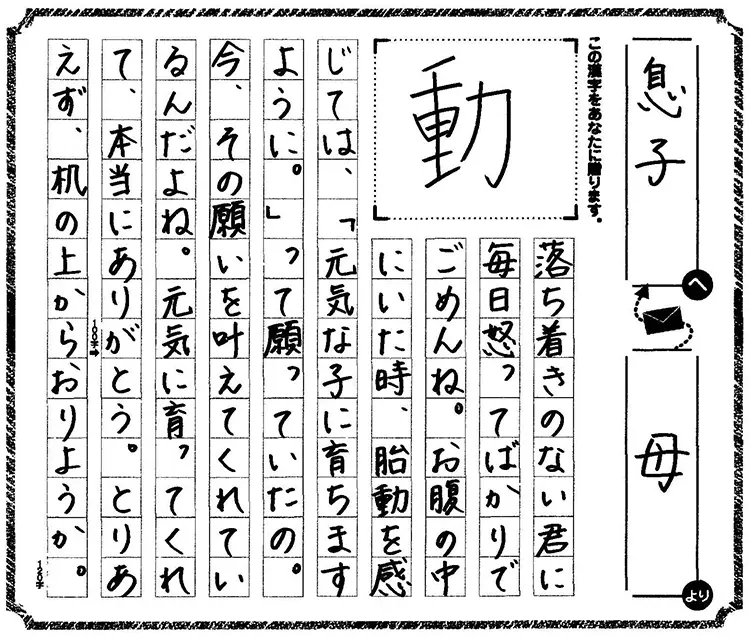 息子
へ
母
より
この漢字をあなたに贈ります。
動
落ち着きのない君に
毎日怒ってばかりで
ごめんね。お腹の中
にいた時、胎動を感
じては、「元気な子に育ちます
ように。」って願っていたの。
今、その願いを叶えてくれてい
るんだよね。元気に育ってくれ
て、本当にありがとう。とりあ
えず、机の上からおりようか。
100字
120字